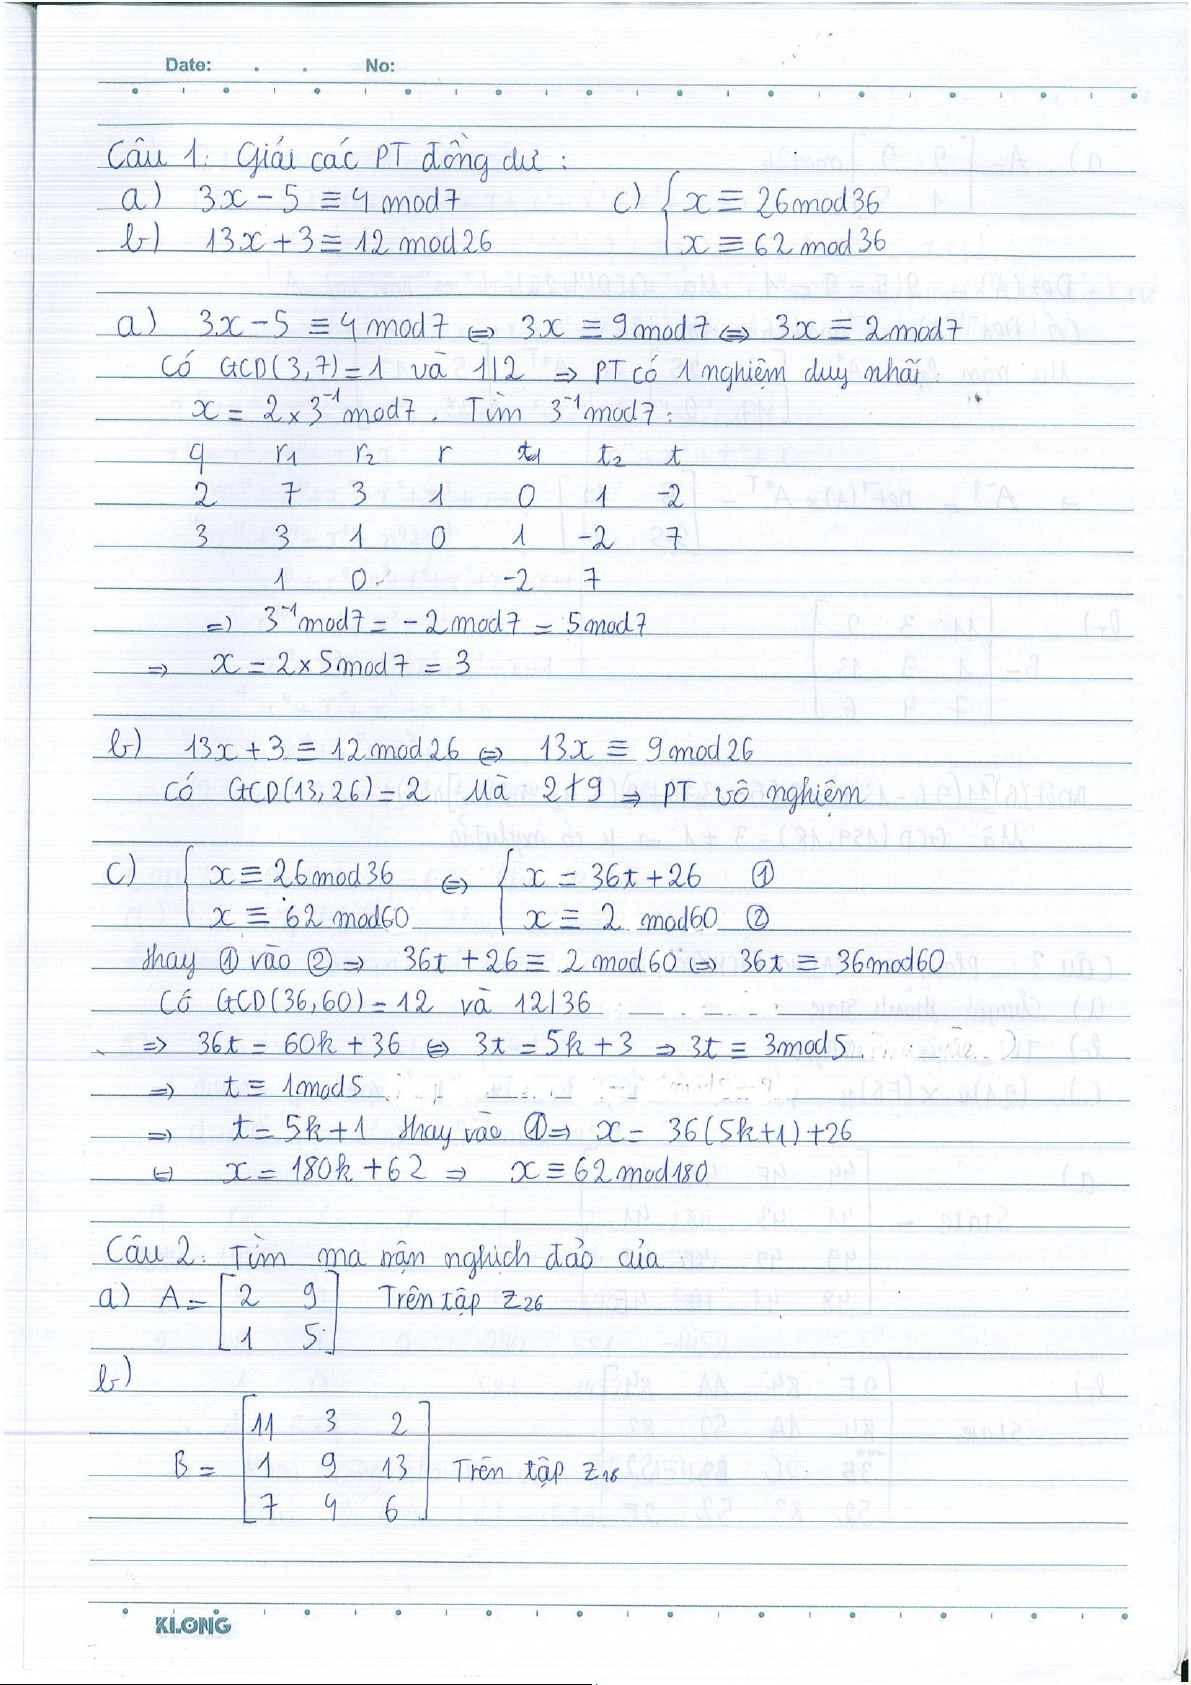 Date: . . No:
Câu 1: Giải các PT đồng dư:
a) 3x - 5 ≡ 4 mod 7
b) 13x + 3 ≡ 12 mod 26
c) { x ≡ 26 mod 36
x ≡ 62 mod 36
a) 3x - 5 ≡ 4 mod 7 ⇔ 3x ≡ 9 mod 7 ⇔ 3x ≡ 2 mod 7
Có GCD(3,7) = 1 và 1|2 ⇒ PT có 1 nghiệm duy nhất.
x = 2 x 3⁻¹ mod 7. Tìm 3⁻¹ mod 7:
q r₁ r₂ r t₁ t₂ t
2 7 3 1 0 1 -2
3 3 1 0 1 -2 7
1 0 -2 7
⇒ 3⁻¹ mod 7 = -2 mod 7 = 5 mod 7
⇒ x = 2 x 5 mod 7 = 3
b) 13x + 3 ≡ 12 mod 26 ⇔ 13x ≡ 9 mod 26
Có GCD(13, 26) = 2 Mà 2 ∤ 9 ⇒ PT vô nghiệm
c) { x ≡ 26 mod 36 ⇔ { x = 36t + 26 ①
x ≡ 62 mod 60 x ≡ 2 mod 60 ②
thay ① vào ② ⇒ 36t + 26 ≡ 2 mod 60 ⇔ 36t ≡ 36 mod 60
Có GCD(36,60) = 12 và 12|36
⇒ 36t = 60k + 36 ⇔ 3t = 5k + 3 ⇒ 3t ≡ 3 mod 5
⇒ t ≡ 1 mod 5
⇒ t = 5k + 1 thay vào ① ⇒ x = 36(5k+1) + 26
⇔ x = 180k + 62 ⇒ x ≡ 62 mod 180
Câu 2: Tìm ma trận nghịch đảo của
a) A = [ 2 9 ] Trên tập Z₂₆
1 5
b)
11 3 2
B = 1 9 13 Trên tập Z₁₈
7 4 6
KLONG